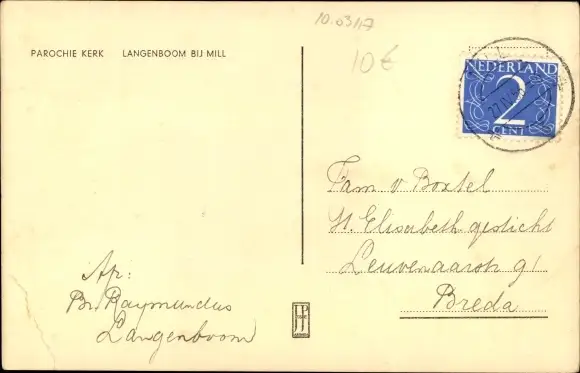 10.03/17
10€
PAROCHIE KERK LANGENBOOM BIJ MILL
NEDERLAND
2
CENT
Fam v Boxtel
St. Elisabeth gesticht
Leuvenaarstr 91
Breda
Afz:
Br. Raymundus
Langenboom
JP